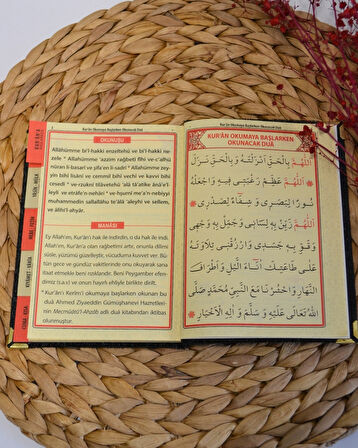 Kur'ân Okumaya Başlarken Okunacak Duâ
OKUNUŞU
Allâhümme bi'l-hakki enzeltehû ve bi'l-hakki ne-
zele * Allâhümme 'azzim rağbetî fîhi ve-c'alhü
nûran li-basarî ve şifâ'en li-sadrî * Allâhümme zey-
yin bihî lisânî ve cemmil bihî vechî ve kavvi bihî
cesedî * ve-rzuknî tilâvetehû 'alâ tâ'atike ânâe'l-
leyli ve etrâfe'n-nehâri * ve-hşurnî me'a'n-nebiyyi
muhammedin sallallâhü te'âlâ 'aleyhi ve sellem,
ve âlihi'l-ahyâr.
MANÂSI
Ey Allah'ım, Kur'ân'ı hak ile indirdin, o da hak ile indi.
Allah'ım, Kur'ân'a olan rağbetimi artır, onunla dilimi
süsle, yüzümü güzelleştir, vücuduma kuvvet ver. Bü-
tün gece ve gündüz vakitlerinde onu okuyarak sana
itaat etmekle beni rızıklandır. Beni Peygamber efen-
dimiz (s.a.v.) ve onun hayırlı ehliyle birlikte dirilt.
* Kur'ân'ı Kerîm'i okumaya başlarken okunan bu
duâ Ahmed Ziyaeddîn Gümüşhanevî Hazretleri-
nin Mecmûâtü'l-Ahzâb adlı duâ kitabından iktibas
olunmuştur.
Kur'ân Okumaya Başlarken Okunacak Duâ
KUR'ÂN OKUMAYA BAŞLARKEN
OKUNACAK DUÂ
اَللّٰهُمَّ بِالْحَقِّ اَنْزَلْتَهُ وَبِالْحَقِّ نَزَلَ
اَللّٰهُمَّ عَظِّمْ رَغْبَتِى فِيهِ وَاجْعَلْهُ
نُورًا لِبَصَرِى وَ شِفَاءً لِصَدْرِى
اَللّٰهُمَّ زَيِّنْ بِهِ لِسَانِى وَجَمِّلْ بِهِ وَجْهِى
وَقَوِّ بِهِ جَسَدِى وَارْزُقْنِى تِلَاوَتَهُ
عَلٰى طَاعَتِكَ اٰنَاءَ الَّيْلِ وَاَطْرَافَ
النَّهَارِ وَاحْشُرْنَا مَعَ النَّبِىِّ مُحَمَّدٍ صَلَّى
اللّٰهُ تَعَالٰى عَلَيْهِ وَ سَلَّمَ وَ اٰلِهِ الْاَخْيَارِ